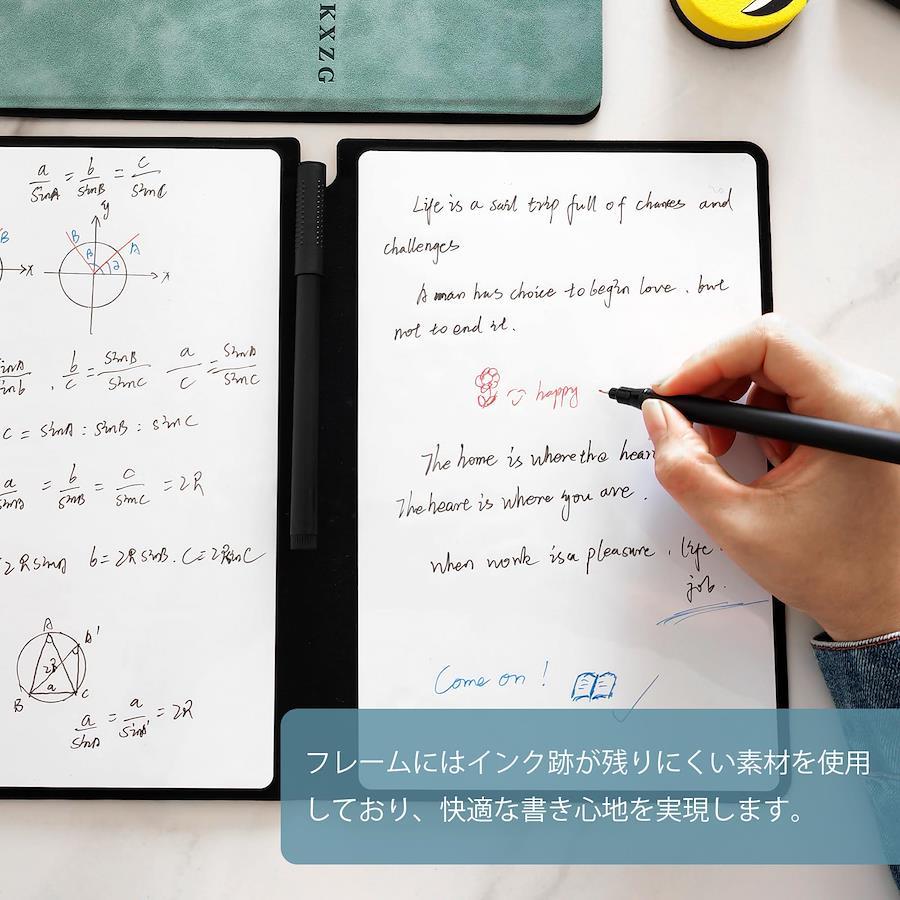 KXZG
a/SinA = b/SinB = c/SinC
y
B
B
A
B
2
x
x
SinA/Sinb , b/c = SinB/SinC a/c = SinA/SinC
c = SinA : SinB : SinC
a/SinA = b/SinB = c/SinC = 2R
= 2RSinA b = 2RSinB . C = 2RSinC
A
A'
2R
a
B
C
a/SinA = a/SinA' = 2R
Life is a sail trip full of chances and
challenges
A man has choice to begin love . but
not to end it .
happy
The home is where the hear
The heart is where you are .
when work is a pleasure , life .
job .
Come on !
フレームにはインク跡が残りにくい素材を使用
しており、快適な書き心地を実現します。